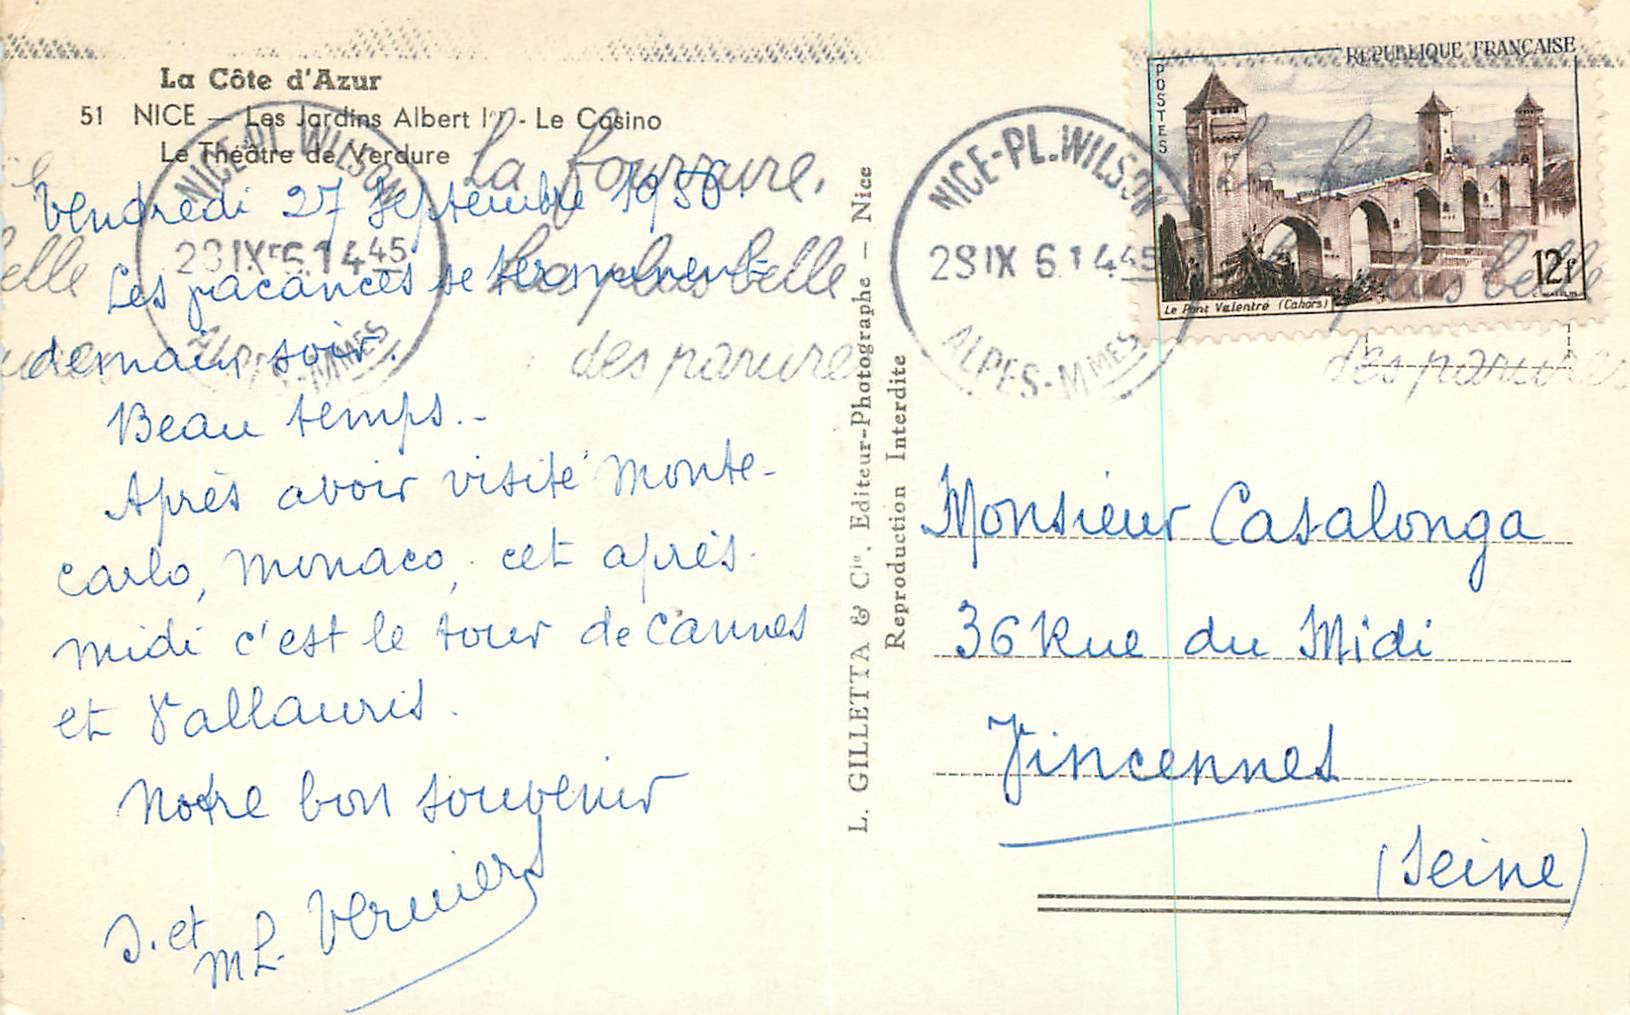 La Côte d'Azur
51 NICE — Les Jardins Albert Ier - Le Casino
Le Théâtre de Verdure
Vendredi 27 Septembre 1956.
Les vacances se terminent
demain soir.
Beau temps.-
Après avoir visité Monte-
Carlo, Monaco, cet après-
midi c'est le tour de Cannes
et Vallauris.
Notre bon souvenir
J. et
ML. Verniers
NICE-PL. WILSON
28 IX 56 1445
ALPES-MMES
la fourrure,
la plus belle
des parures
L. GILLETTA & Cie. Editeur-Photographe — Nice
Reproduction Interdite
NICE-PL. WILSON
28 IX 56 1445
ALPES-MMES
la plus belle
des parures
REPUBLIQUE FRANÇAISE
POSTES
12f
Le Pont Valentré (Cahors)
Monsieur Casalonga
36 Rue du Midi
Vincennes
(Seine)